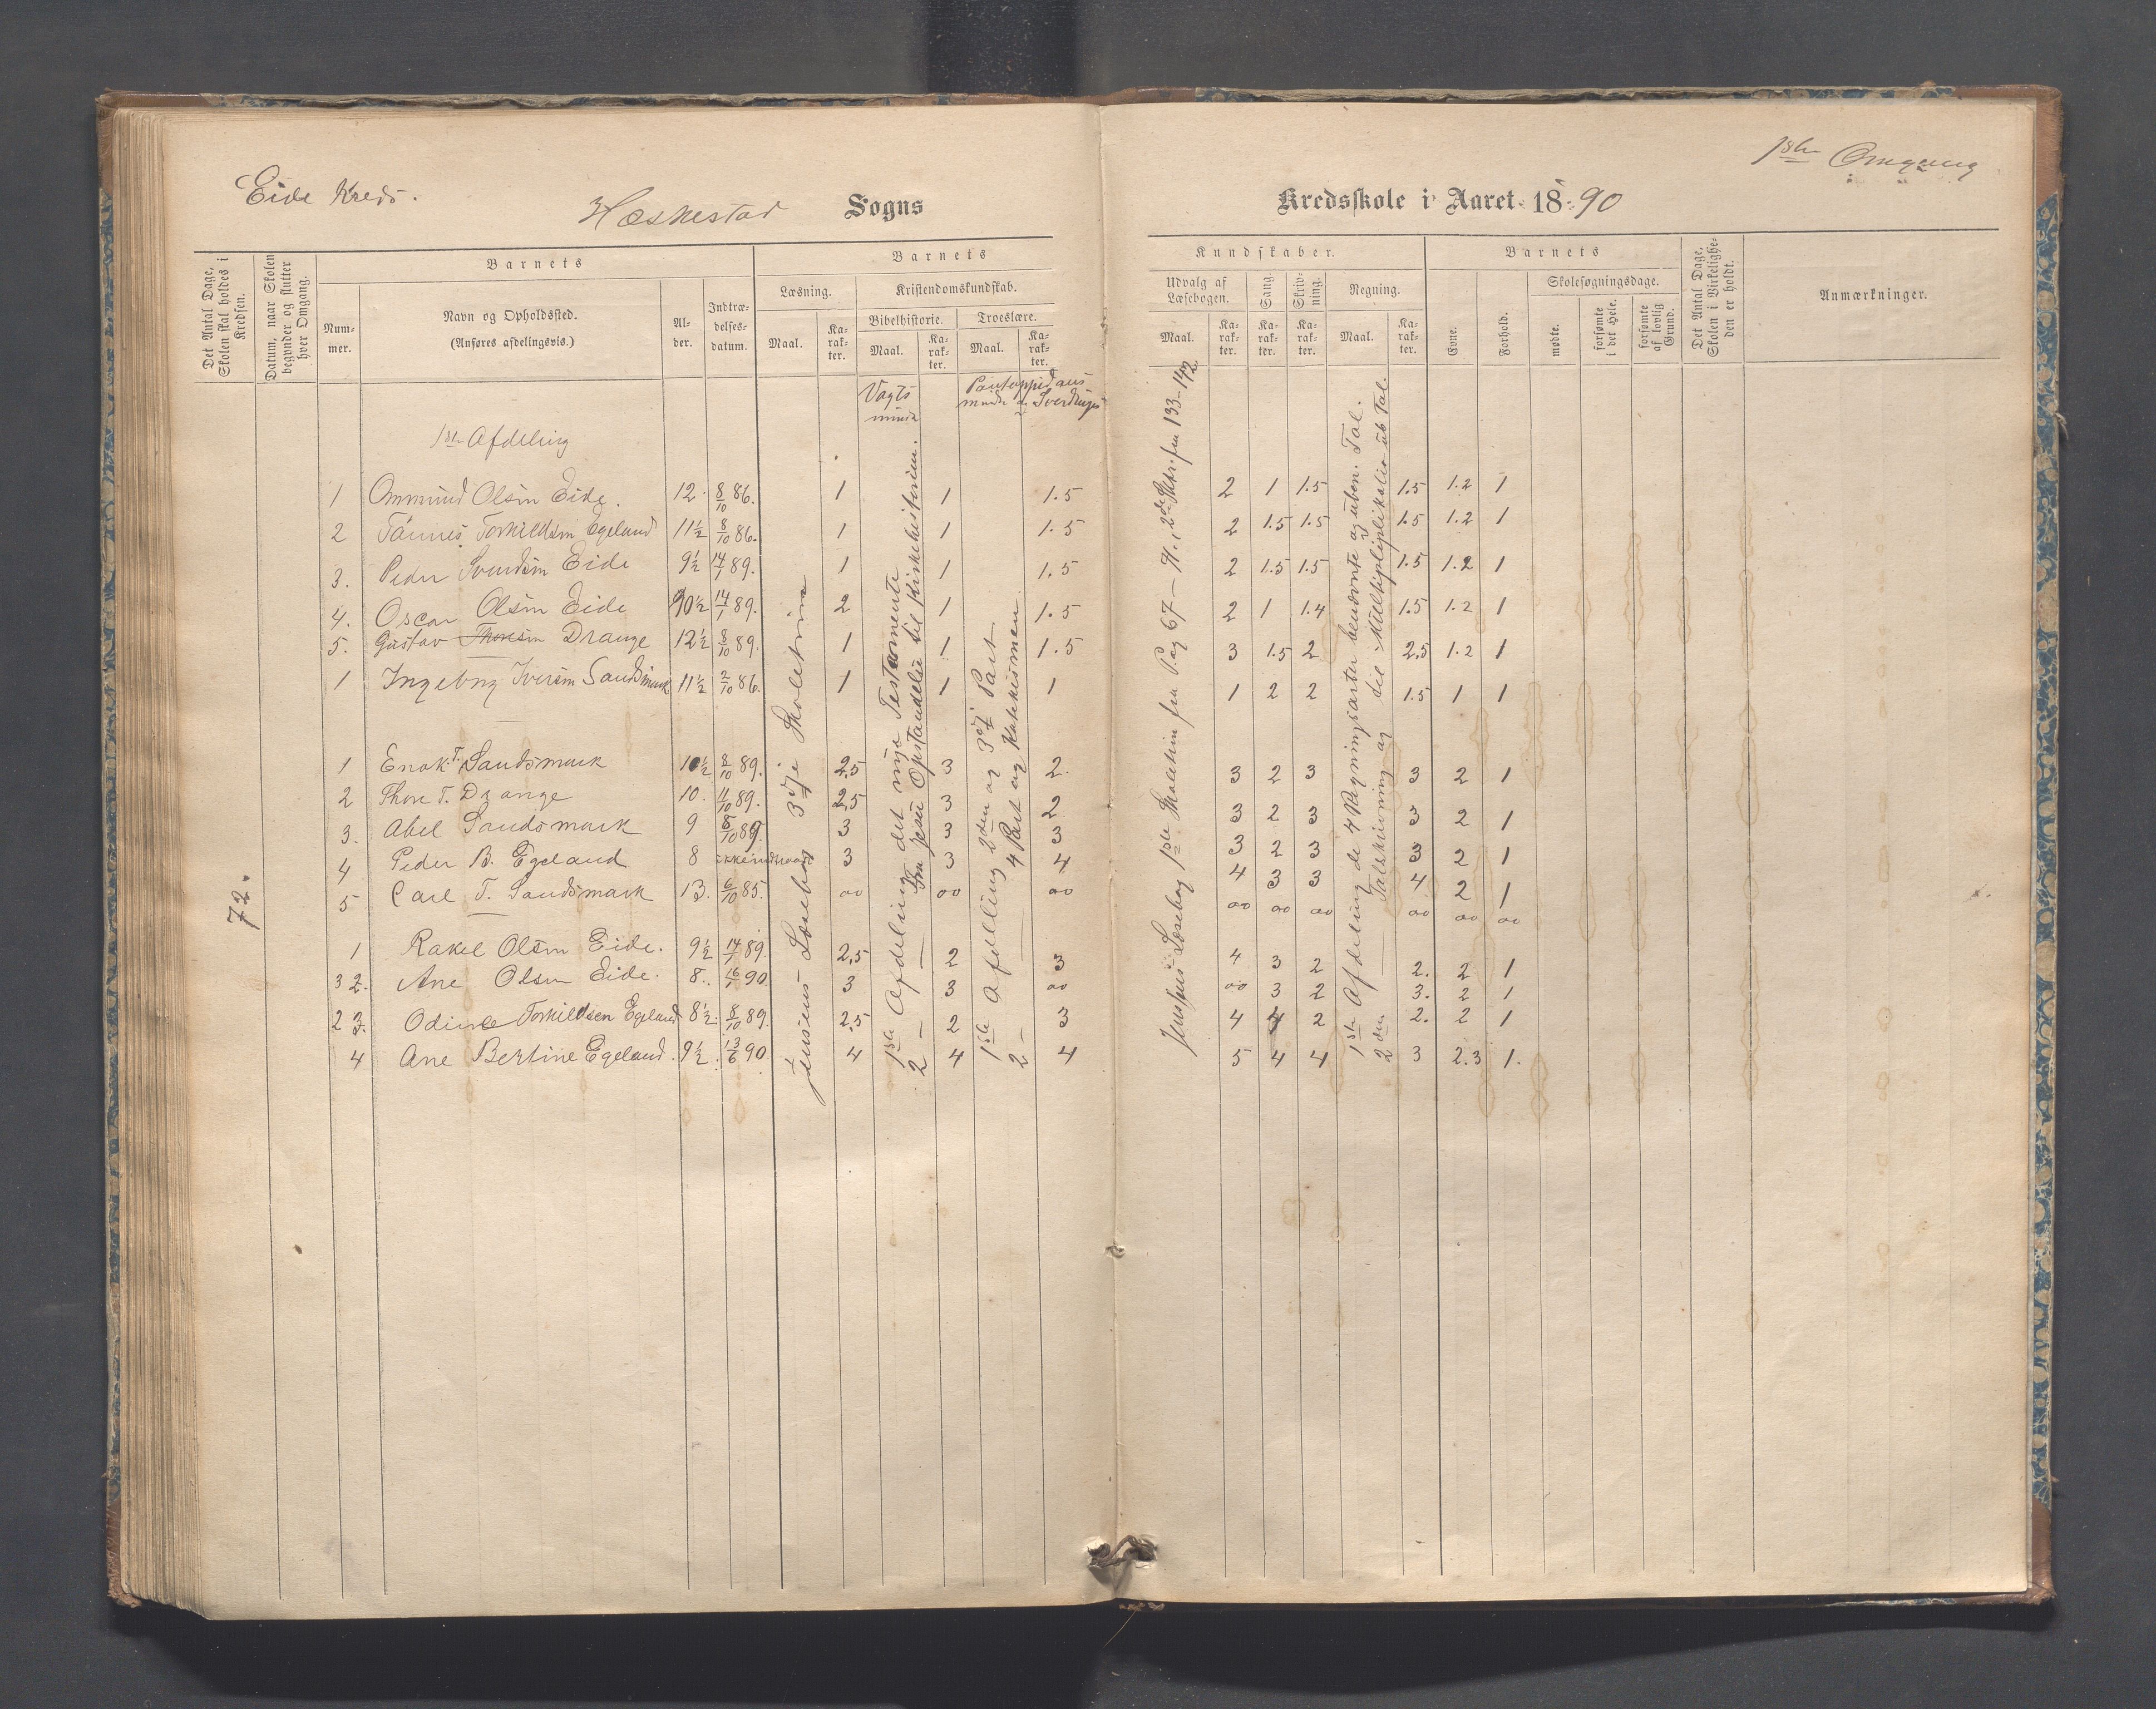 Eide Kreds.
Heskestad Sogns
Det Antal Dage, Skolen skal holdes i Kredsen.
Datum, naar Skolen begynder og slutter hver Omgang.
Barnets
Num-mer.
Navn og Opholdssted.
(Anføres afdelingsvis.)
Al-der.
Indtræ-delses-datum.
Barnets
Læsning.
Kristendomskundskab.
Bibelhistorie.
Troeslære.
Maal.
Ka-rak-ter.
Maal.
Ka-rak-ter.
Maal.
Ka-rak-ter.
Vogts mindre
Pontoppidans mindre Sverdrups
1ste Afdeling
1 Ommund Olsen Eide. 12. 8/10 86. 1 1 1.5
2 Tönnes Torkildsen Egeland 11½ 8/10 86. 1 1 1.5
3. Peder Svendsen Eide 9½ 14/1 89. 1 1 1.5
4. Oscar Olsen Eide 10½ 14/1 89. 2 1 1.5
5. Gustav Thoresen Drange 12½ 8/10 89. 1 1 1.5
1 Ingeborg Iversen Sandsmark 11½ 2/10 86. 1 1 1
1 Enok T. Sandsmark 10½ 8/10 89. 2,5 3 2.
2 Thore T. Drange 10. 11/10 89. 2,5 3 2
3. Abel Sandsmark 9 8/10 89. 3 3 3
4 Peder B. Egeland 8 3 3 4
5 Carl T. Sandsmark 13. 6/10 85. oo oo oo
72.
1 Rakel Olsen Eide. 9½ 14/1 89. 2,5 2 3
3 2. Ane Olsen Eide. 8. 16/1 90. 3 3 oo
2 3. Odine Torkildsen Egeland 8½. 8/10 89. 2,5 2 3
4 Ane Bertine Egeland. 9½. 13/6 90. 4 4 4
Jensens Læsebog 3die Skoletrin
1ste Afdeling det nye Testamente
2 — — fra Jesu Opstandelse til Kirkehistorien.
1ste Afdelling 2den og 3die Part
2 — — 4 Part og Katekismen
1ste Omgang
Kredsskole i Aaret 1890
Kundskaber.
Udvalg af Læsebogen.
Sang.
Skriv-ning.
Regning.
Maal.
Ka-rak-ter.
Ka-rak-ter.
Ka-rak-ter.
Maal.
Ka-rak-ter.
Barnets
Evne.
Forhold.
Skolesøgningsdage.
mødte.
forsømte i det Hele.
forsømte af lovlig Grund.
Det Antal Dage, Skolen i Virkelighe-den er holdt.
Anmærkninger.
2 1 1.5 1.5 1.2 1
2 1.5 1.5 1.5 1.2 1
2 1.5 1.5 1.5 1.2 1
2 1 1.4 1.5 1.2 1
3 1.5 2 2.5 1.2 1
1 2 2 1.5 1 1
3 2 3 3 2 1
3 2 3 3 2 1
3 2 3 3 2 1
4 3 3 4 2 1
oo oo oo oo oo oo
4 3 2 2. 2 1
oo 3 2 3. 2 1
4 4 2 2. 2 1
5 4 4 3 2.3 1.
Læsebog 1ste Skoletrin fra Pag 67 — fra 133-142
1ste Afdeling de 4 Regningsarter benævnte og uben. Tal.
2den — Talskrivning og til Multiplikation ub Tal.